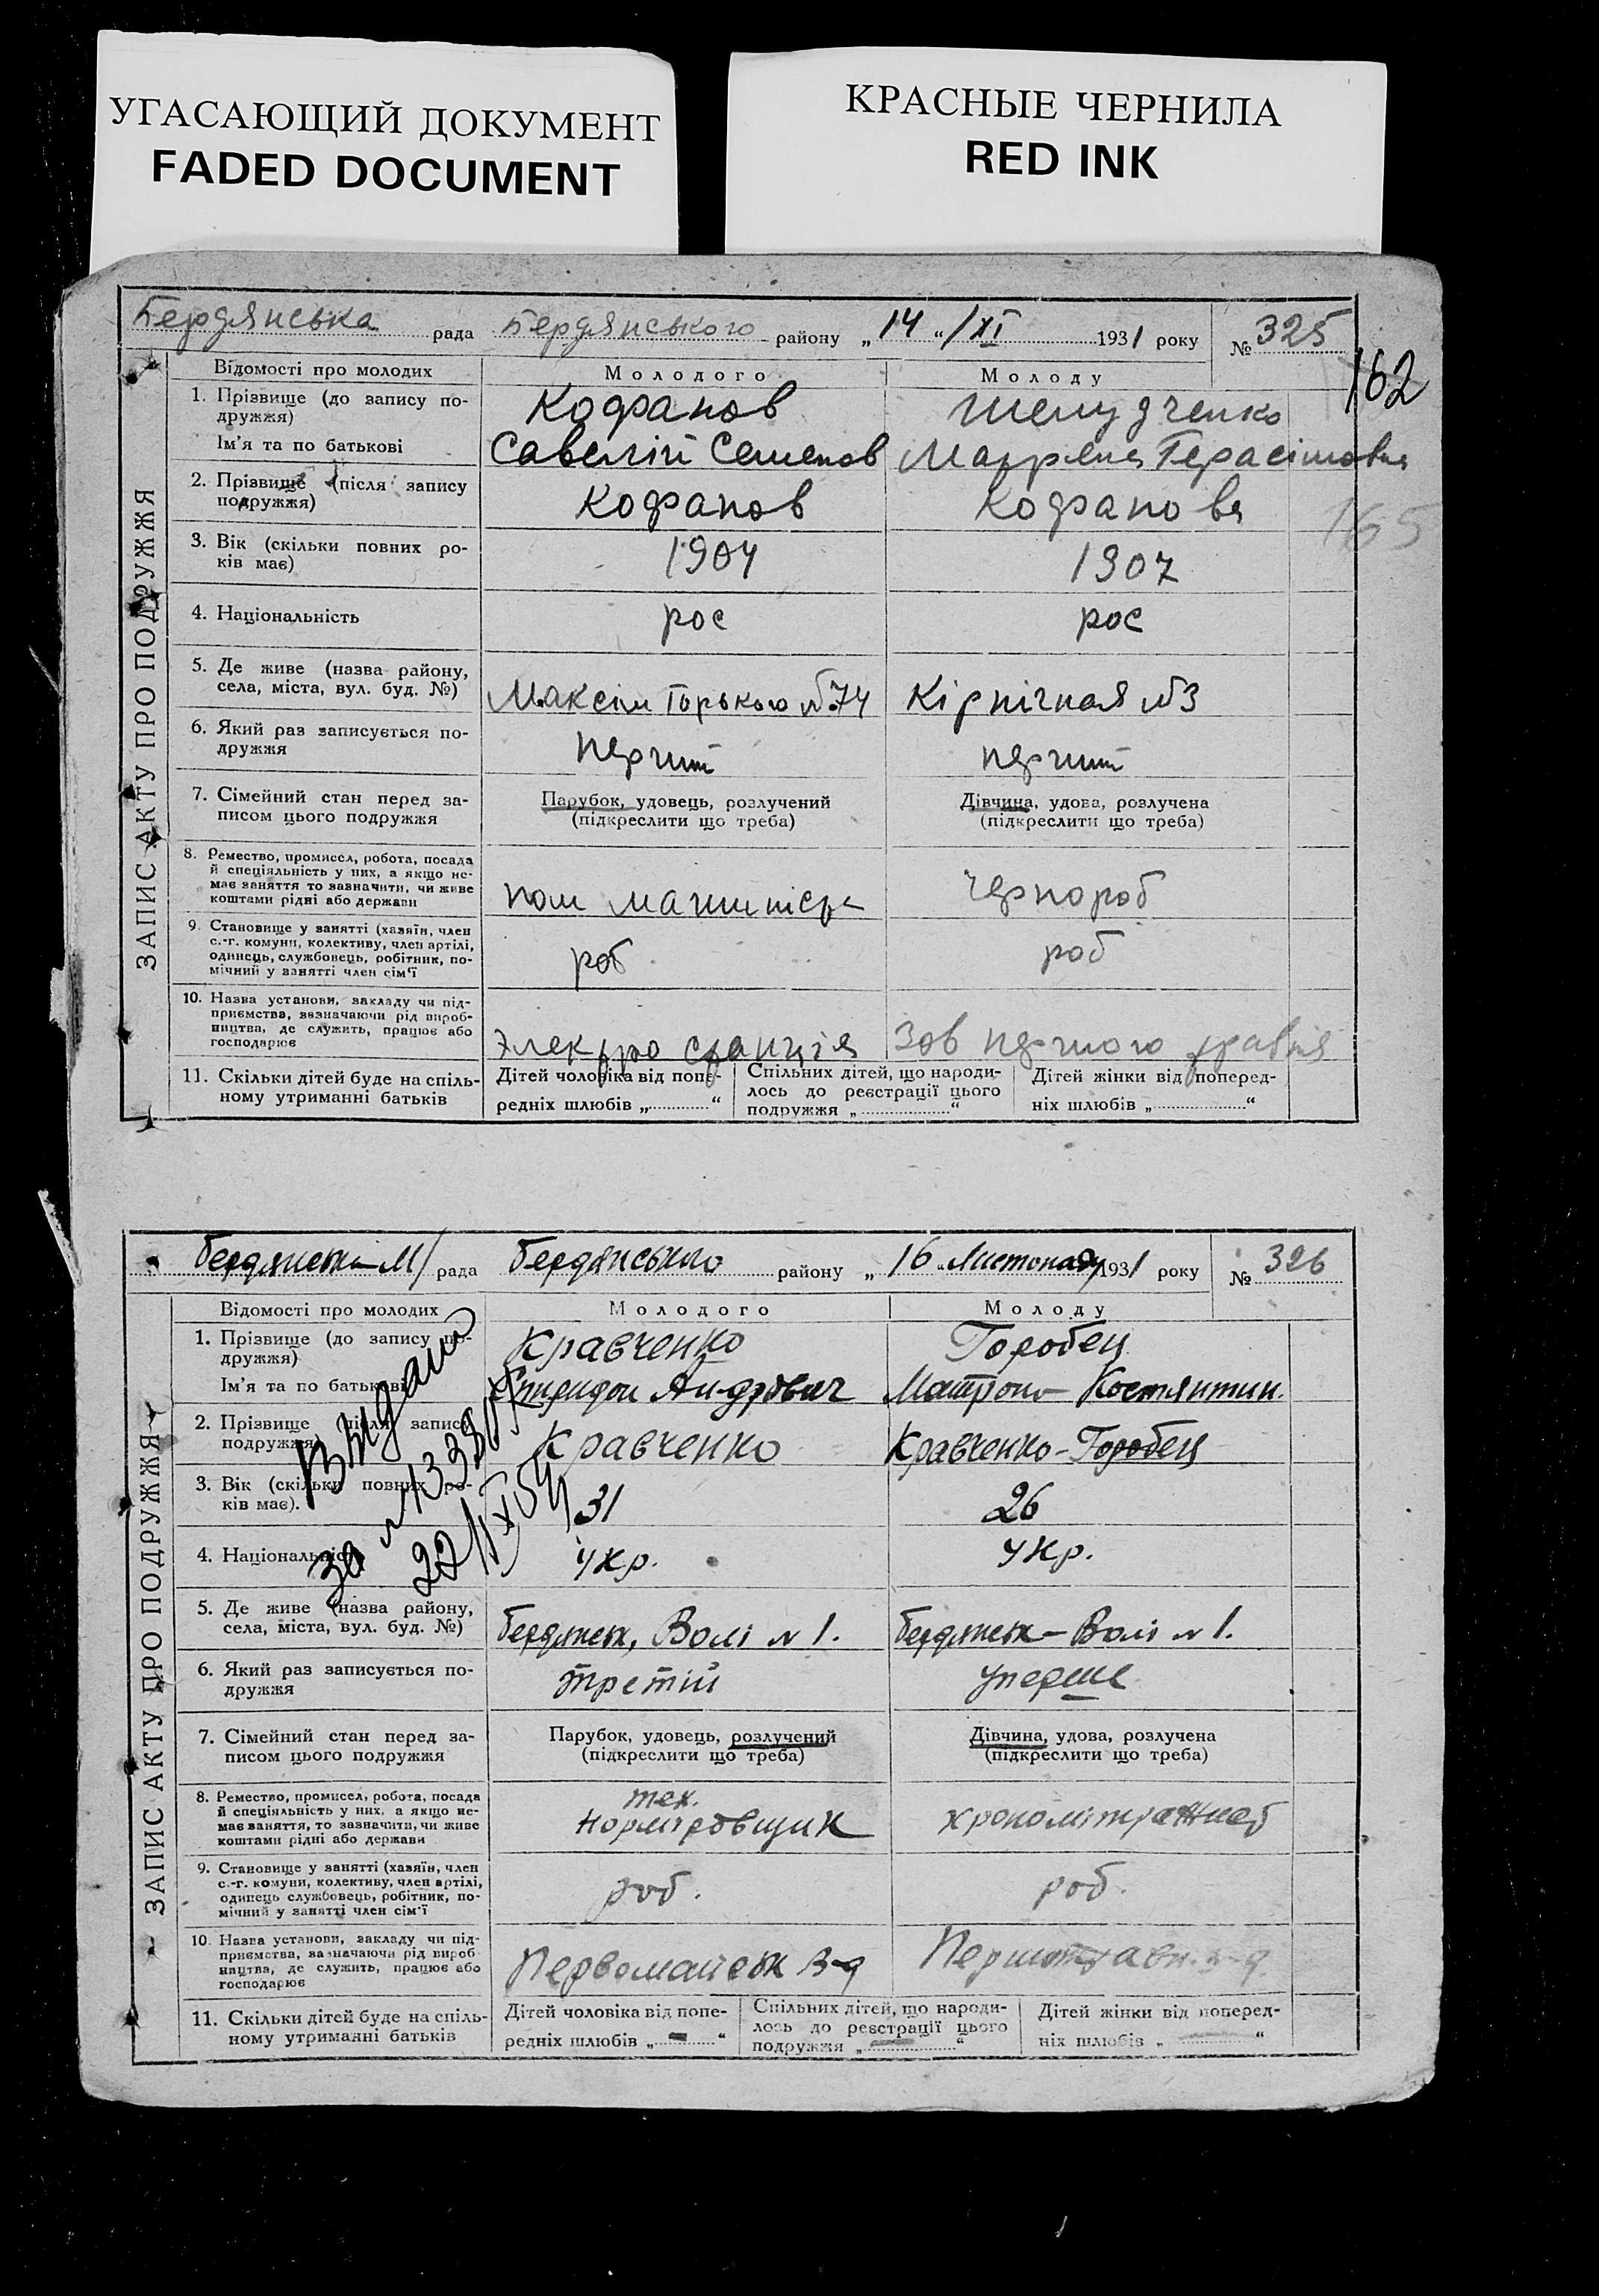 УГАСАЮЩИЙ ДОКУМЕНТ
FADED DOCUMENT
КРАСНЫЕ ЧЕРНИЛА
RED INK
Бердянська рада Бердянського району „14“ /XI 1931 року № 325
162
165
ЗАПИС АКТУ ПРО ПОДРУЖЖЯ
Відомості про молодих Молодого Молоду
1. Прізвище (до запису по-
дружжя) Кофанов
Ім'я та по батькові Савелій Семенов Герасімовна
2. Прізвище (після запису
подружжя) Кофанов Кофанова
3. Вік (скільки повних ро-
ків має) 1904 1907
4. Національність рос рос
5. Де живе (назва району,
села, міста, вул. буд. №) Максім Горького №74 Кірпічная №3
6. Який раз записується по-
дружжя перший перший
7. Сімейний стан перед за-
писом цього подружжя
Парубок, удовець, розлучений
(підкреслити що треба)
Дівчина, удова, розлучена
(підкреслити що треба)
8. Ремество, промисел, робота, посада
й спеціяльність у них, а якщо не-
має заняття то зазначити, чи живе
коштами рідні або держави
пом машиніста чернороб
9. Становище у занятті (хазяїн, член
с.-г. комуни, колективу, член артілі,
одинець, службовець, робітник, по-
мічний у занятті член сім'ї
роб роб
10. Назва установи, закладу чи під-
приємства, зазначаючи рід вироб-
ництва, де служить, працює або
господарює
Электро станція Зов першого травня
11. Скільки дітей буде на спіль-
ному утриманні батьків
Дітей чоловіка від попе-
редніх шлюбів „ “
Спільних дітей, що народи-
лось до реєстрації цього
подружжя „ “
Дітей жінки від поперед-
ніх шлюбів „ “
Бердянська М/ рада Бердянського району „16“ Листопада 1931 року № 326
ЗАПИС АКТУ ПРО ПОДРУЖЖЯ
Відомості про молодих Молодого Молоду
1. Прізвище (до запису по-
дружжя) Кравченко Горобец
Ім'я та по батькові Спиридон Андрович Матрона Костянтин.
2. Прізвище (після запису
подружжя) Кравченко Кравченко-Горобец
3. Вік (скільки повних ро-
ків має). 31 26
4. Національність укр. укр.
Видано
за №
22/IX 54
5. Де живе (назва району,
села, міста, вул. буд. №) Бердянськ, Волі № 1. Бердянськ – Волі № 1.
6. Який раз записується по-
дружжя третій уперше
7. Сімейний стан перед за-
писом цього подружжя
Парубок, удовець, розлучений
(підкреслити що треба)
Дівчина, удова, розлучена
(підкреслити що треба)
8. Ремество, промисел, робота, посада
й спеціяльність у них, а якщо не-
має заняття, то зазначити, чи живе
коштами рідні або держави
тех.
норміровщик
9. Становище у занятті (хазяїн, член
с.-г. комуни, колективу, член артілі,
одинець службовець, робітник, по-
мічний у занятті член сім'ї
роб. роб.
10. Назва установи, закладу чи під-
приємства, зазначаючи рід вироб-
ництва, де служить, працює або
господарює
Первомайськ з-д Першотравн. з-д
11. Скільки дітей буде на спіль-
ному утриманні батьків
Дітей чоловіка від попе-
редніх шлюбів „ – “
Спільних дітей, що народи-
лось до реєстрації цього
подружжя „ – “
Дітей жінки від поперед-
ніх шлюбів „ – “